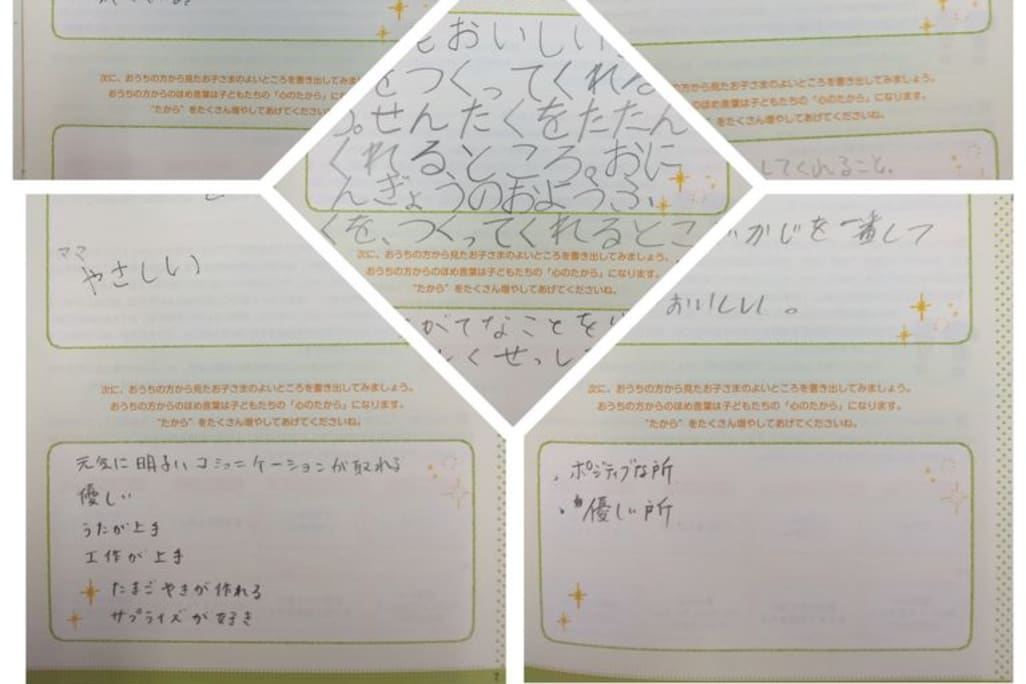 次に、おうちの方から見たお子さまのよいところを書き出してみま
おうちの方からのほめ言葉は子どもたちの「心のたから」になり
"たから"をたくさん増やしてあげてくださいね
もおいしい
をつくってくれる
。せんたくをたたん
くれるところ。おに
んぎょうのおようふ
くを、つくってくれるとこ
次に、おうちの方から見たお子さまのよいところを書き出してみましょう。
おうちの方からのほめ言葉は子どもたちの「心のたから」になります。
"たから"をたくさん増やしてあげてくださいね。
がてなことを
くせっし
の方から見たお子さまのよいところを書き出してみましょう。
のほめ言葉は子どもたちの「心のたから」になります。
をたくさん増やしてあげてくださいね。
してくれること。
ママ
やさしい
次に、おうちの方から見たお子さまのよいところを書き出してみましょう。
おうちの方からのほめ言葉は子どもたちの「心のたから」になります。
"たから"をたくさん増やしてあげてくださいね。
元気に明るいコミュニケーションが取れる
優しい
うたが上手
工作が上手
たまごやきが作れる
サプライズが好き
7
かじを一番して
おいしい。
次に、おうちの方から見たお子さまのよいところを書き出してみましょう。
おうちの方からのほめ言葉は子どもたちの「心のたから」になります。
"たから"をたくさん増やしてあげてくださいね。
・ポジティブな所
・優しい所